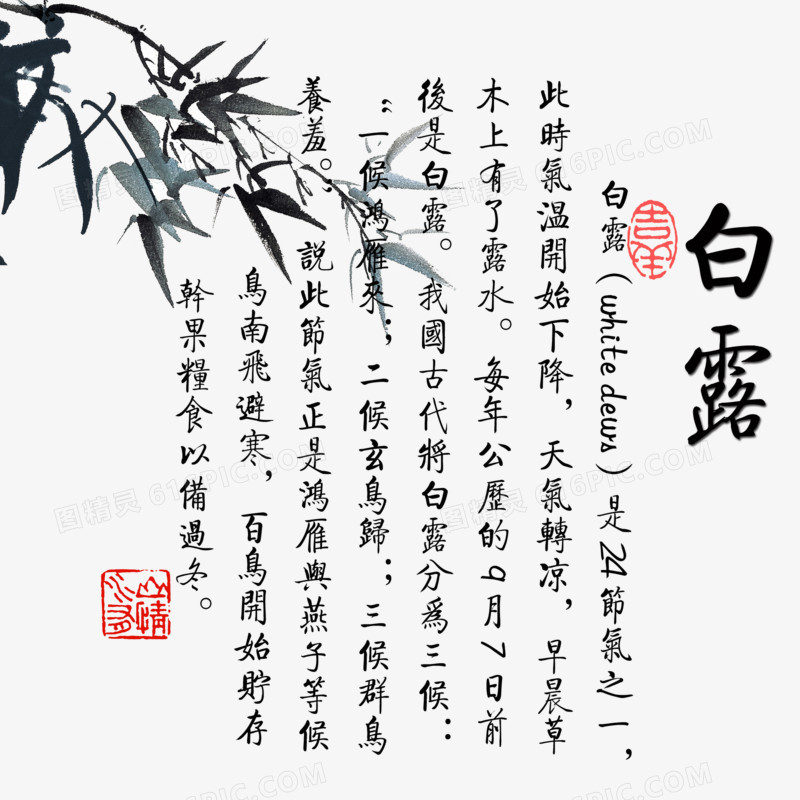 白露
吉羊
白露（white dews）是24節氣之一，
此時氣溫開始下降，天氣轉凉，早晨草
木上有了露水。每年公歷的9月7日前
後是白露。我國古代將白露分爲三候：
“一候鴻雁來；二候玄鳥歸；三候群鳥
養羞。”
説此節氣正是鴻雁與燕子等候
鳥南飛避寒，百鳥開始貯存
幹果糧食以備過冬。
图精灵 616PIC.COM